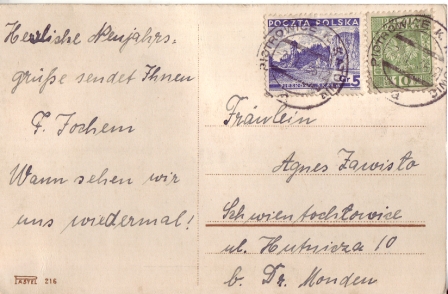 Herzliche Neujahrs=
grüße sendet Ihnen
F. Jochem
Wann sehen wir
uns wiedermal!
216
POCZTA POLSKA
5
10
PIOTROWICE K.
Fräulein
Agnes Zawisto
Schwientochtowice
ul. Hutnicza 10
b. Dr. Monden